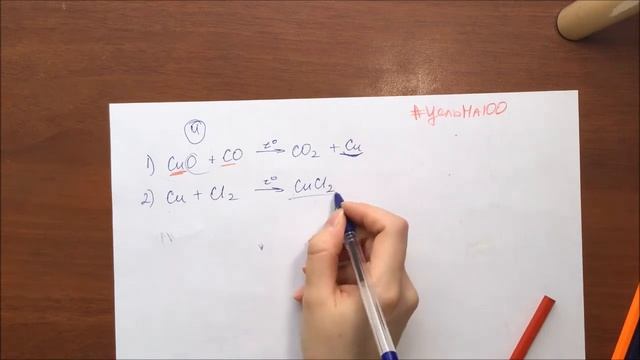 #ЦельНа100
1) CuO + CO t° → CO₂ + Cu
2) Cu + Cl₂ t° → CuCl₂